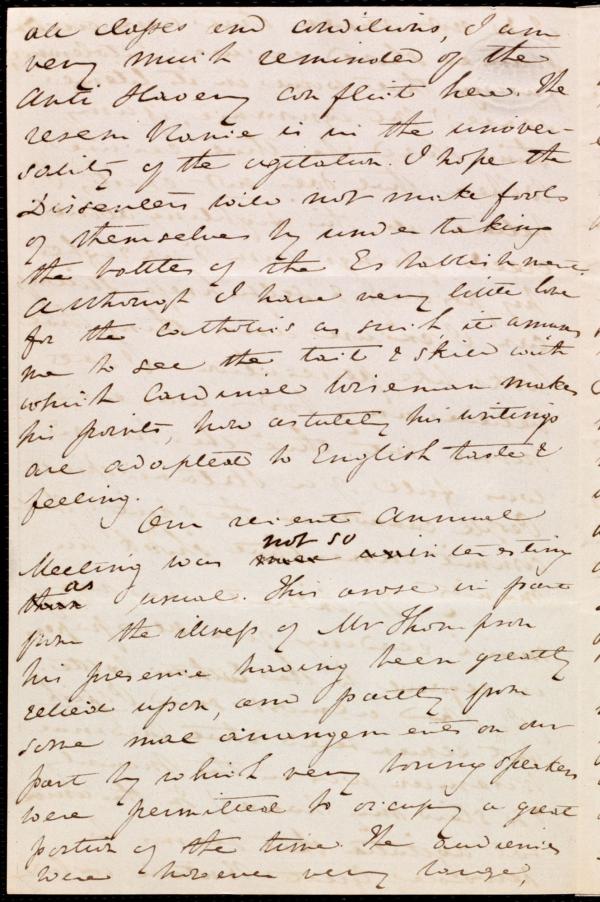 all classes and conditions, I am
very much reminded of the
Anti Slavery conflict here. The
resemblance is in the univer-
sality of the agitation. I hope the
Dissenters will not make fools
of themselves by undertaking
the battles of the Establishment.
Although I have very little love
for the Catholics as such it amuses
me to see the tact & skill with
which Cardinal Wiseman makes
his points, how astutely his writings
are adapted to English taste &
feeling.
Our recent Annual
Meeting was not so interesting
as usual. This arose in part
from the illness of Mr Thompson
his presence having been greatly
relied upon, and partly from
some mal arrangements on our
part by which very boring speakers
were permitted to occupy a great
portion of the time. The audiences
were however very large,